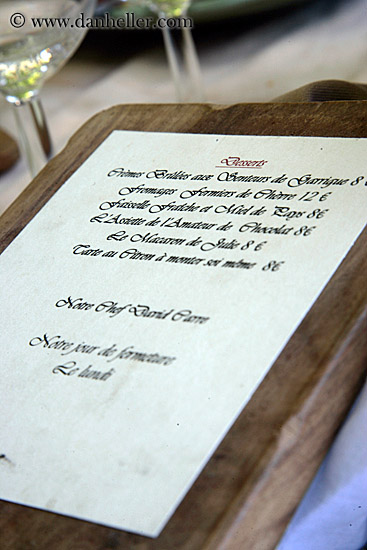 © www.danheller.com
Desserts
Crèmes Brulées aux Senteurs de Garrigue 8 €
Fromages Fermiers de Chèvre 12 €
Faisselle Fraîche et Miel de Pays 8€
L'Assiette de l'Amateur de Chocolat 8€
Le Macaron de Julie 8 €
Tarte au Citron à monter soi même 8€
Notre Chef David Carre
Notre jour de fermeture
Le lundi